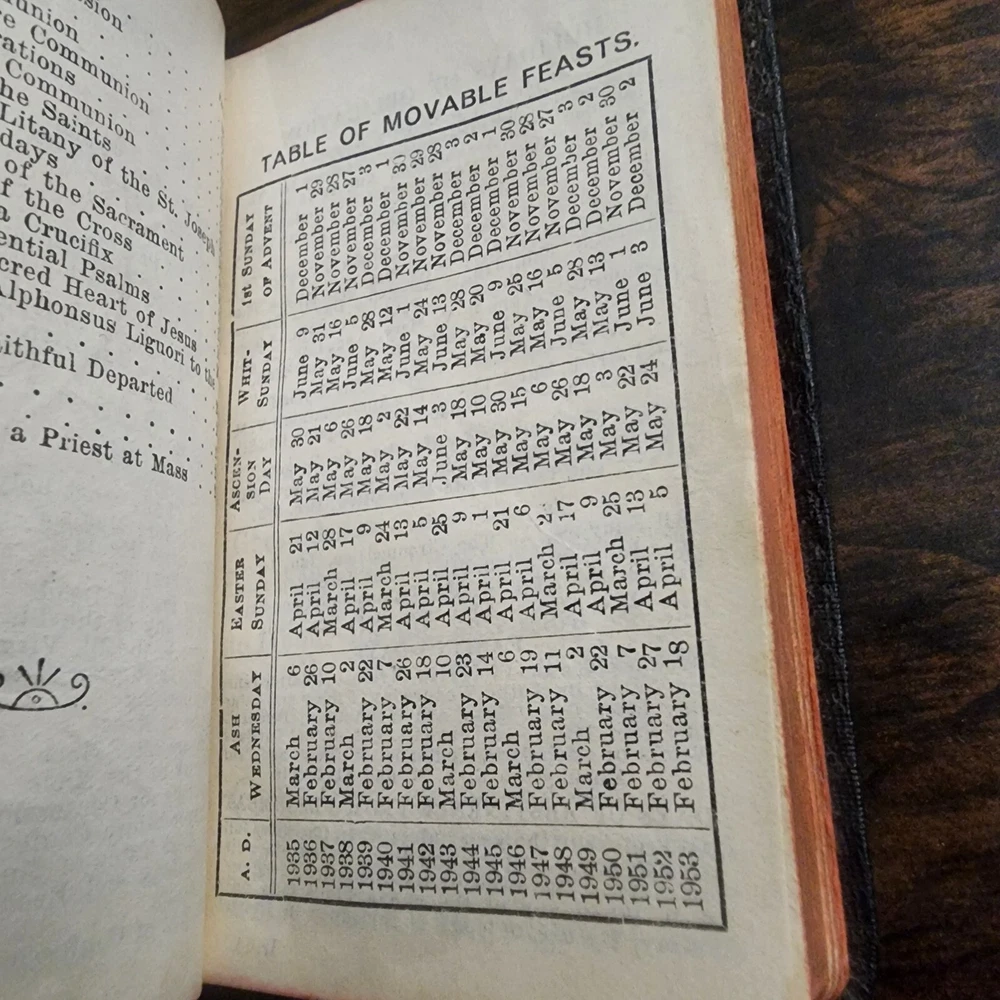 sion
nunion
e Communion
rations
Communion
he Saints
Litany of the St. Joseph
days
of the Sacrament
f the Cross
a Crucifix
ential Psalms
cred Heart of Jesus
Alphonsus Liguori to the
ithful Departed
a Priest at Mass
TABLE OF MOVABLE FEASTS.
A. D. ASH WEDNESDAY EASTER SUNDAY ASCEN-SION DAY WHIT-SUNDAY 1st SUNDAY OF ADVENT
1935 March 6 April 21 May 30 June 9 December 1
1936 February 26 April 12 May 21 May 31 November 29
1937 February 10 March 28 May 6 May 16 November 28
1938 March 2 April 17 May 26 June 5 November 27
1939 February 22 April 9 May 18 May 28 December 3
1940 February 7 March 24 May 2 May 12 December 1
1941 February 26 April 13 May 22 June 1 November 30
1942 February 18 April 5 May 14 May 24 November 29
1943 March 10 April 25 June 3 June 13 November 28
1944 February 23 April 9 May 18 May 28 December 3
1945 February 14 April 1 May 10 May 20 December 2
1946 March 6 April 21 May 30 June 9 December 1
1947 February 19 April 6 May 15 May 25 November 30
1948 February 11 March May 6 May 16 November 28
1949 March 2 April 17 May 26 June 5 November 27
1950 February 22 April 9 May 18 May 28 December 3
1951 February 7 March 25 May 3 May 13 December 2
1952 February 27 April 13 May 22 June 1 November 30
1953 February 18 April 5 May 24 June 3 December 2